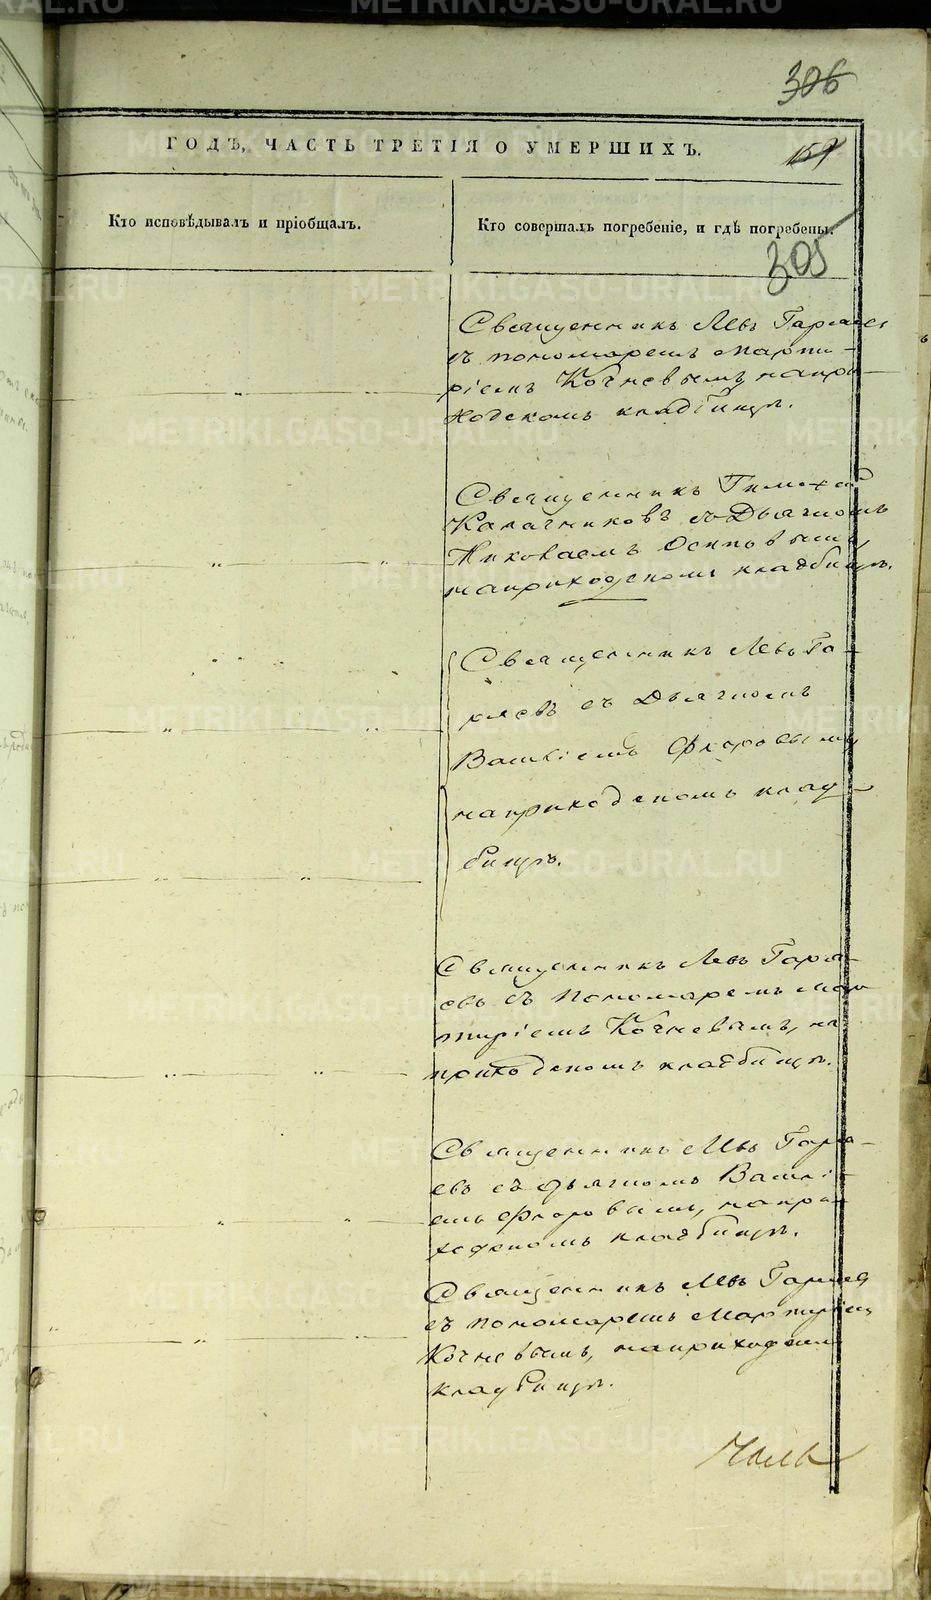 306
ГОДЪ, ЧАСТЬ ТРЕТІЯ О УМЕРШИХЪ.
159
Кто исповѣдывалъ и пріобщалъ.
Кто совершалъ погребеніе, и гдѣ погребены.
305
Священникъ Левъ Гаряев
съ пономаремъ Марти-
ріемъ Кочневымъ, на при-
ходскомъ кладбищѣ.
Священникъ Тимофей
Калачниковъ съ Дьячкомъ
Николаемъ Осиповымъ,
на приходскомъ кладбищѣ.
Священникъ Левъ Га-
ряевъ съ Дьячкомъ
Васи́ліемъ Флоровымъ,
на приходскомъ клад-
бищѣ.
Священникъ Левъ Гаря-
евъ съ Пономаремъ Мар-
тиріемъ Кочневымъ, на
приходскомъ кладбищѣ.
Священникъ Левъ Гаря-
евъ съ дьячкомъ Василі-
емъ Флоровымъ, на при-
ходскомъ кладбищѣ.
Священникъ Левъ Гаряев
съ пономаремъ Мартиріем
Кочневымъ, на приходском
кладбищѣ.
METRIKI.GASO-URAL.RU